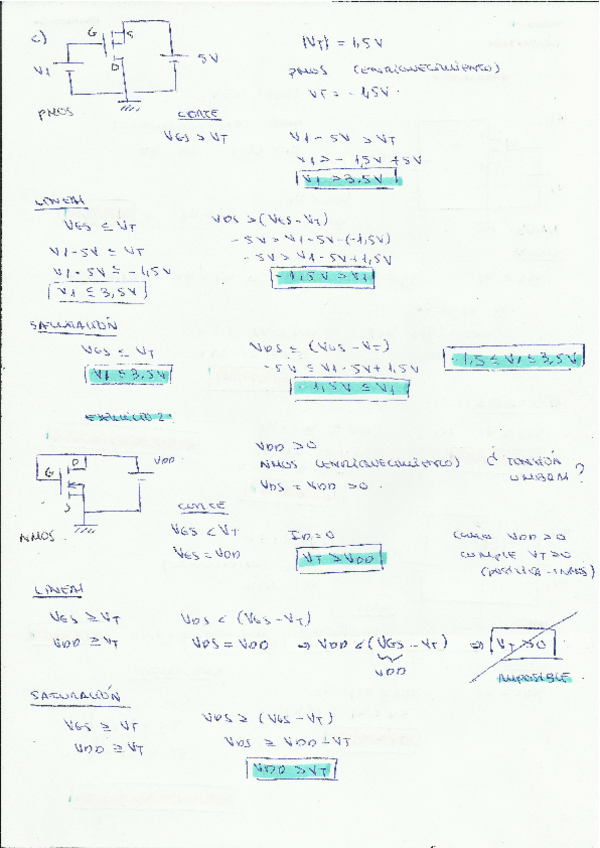 c)
G
S
D
V1
5V
PMOS
|VT| = 1,5V
PMOS (ENRIQUECIMIENTO)
VT = -1,5V.
CORTE
VGS > VT
V1 - 5V > VT
V1 > -1,5V + 5V
V1 > 3,5V
LINEAL
VGS ≤ VT
V1 - 5V ≤ VT
V1 - 5V ≤ -1,5V
V1 ≤ 3,5V
VDS > (VGS - VT)
-5V > V1 - 5V - (-1,5V)
-5V > V1 - 5V + 1,5V
-1,5V > V1
SATURACIÓN
VGS ≤ VT
V1 ≤ 3,5V
VDS ≤ (VGS - VT)
-5V ≤ V1 - 5V + 1,5V
-1,5V ≤ V1
-1,5 ≤ V1 ≤ 3,5V
EJERCICIO 2
G
D
S
VDD
NMOS
VDD > 0
NMOS (ENRIQUECIMIENTO)
VDS = VDD > 0
¿ TENSIÓN
UMBRAL ?
CORTE
VGS < VT
VGS = VDD
ID = 0
VT > VDD
COMO VDD > 0
CUMPLE VT > 0
LINEAL
VGS ≥ VT
VDD ≥ VT
VDS < (VGS - VT)
VDS = VDD ⇒ VDD < (VGS - VT) ⇒ VT > 0
VDD
IMPOSIBLE
SATURACIÓN
VGS ≥ VT
VDD ≥ VT
VDS ≥ (VGS - VT)
VDS ≥ VDD - VT
VDD > VT